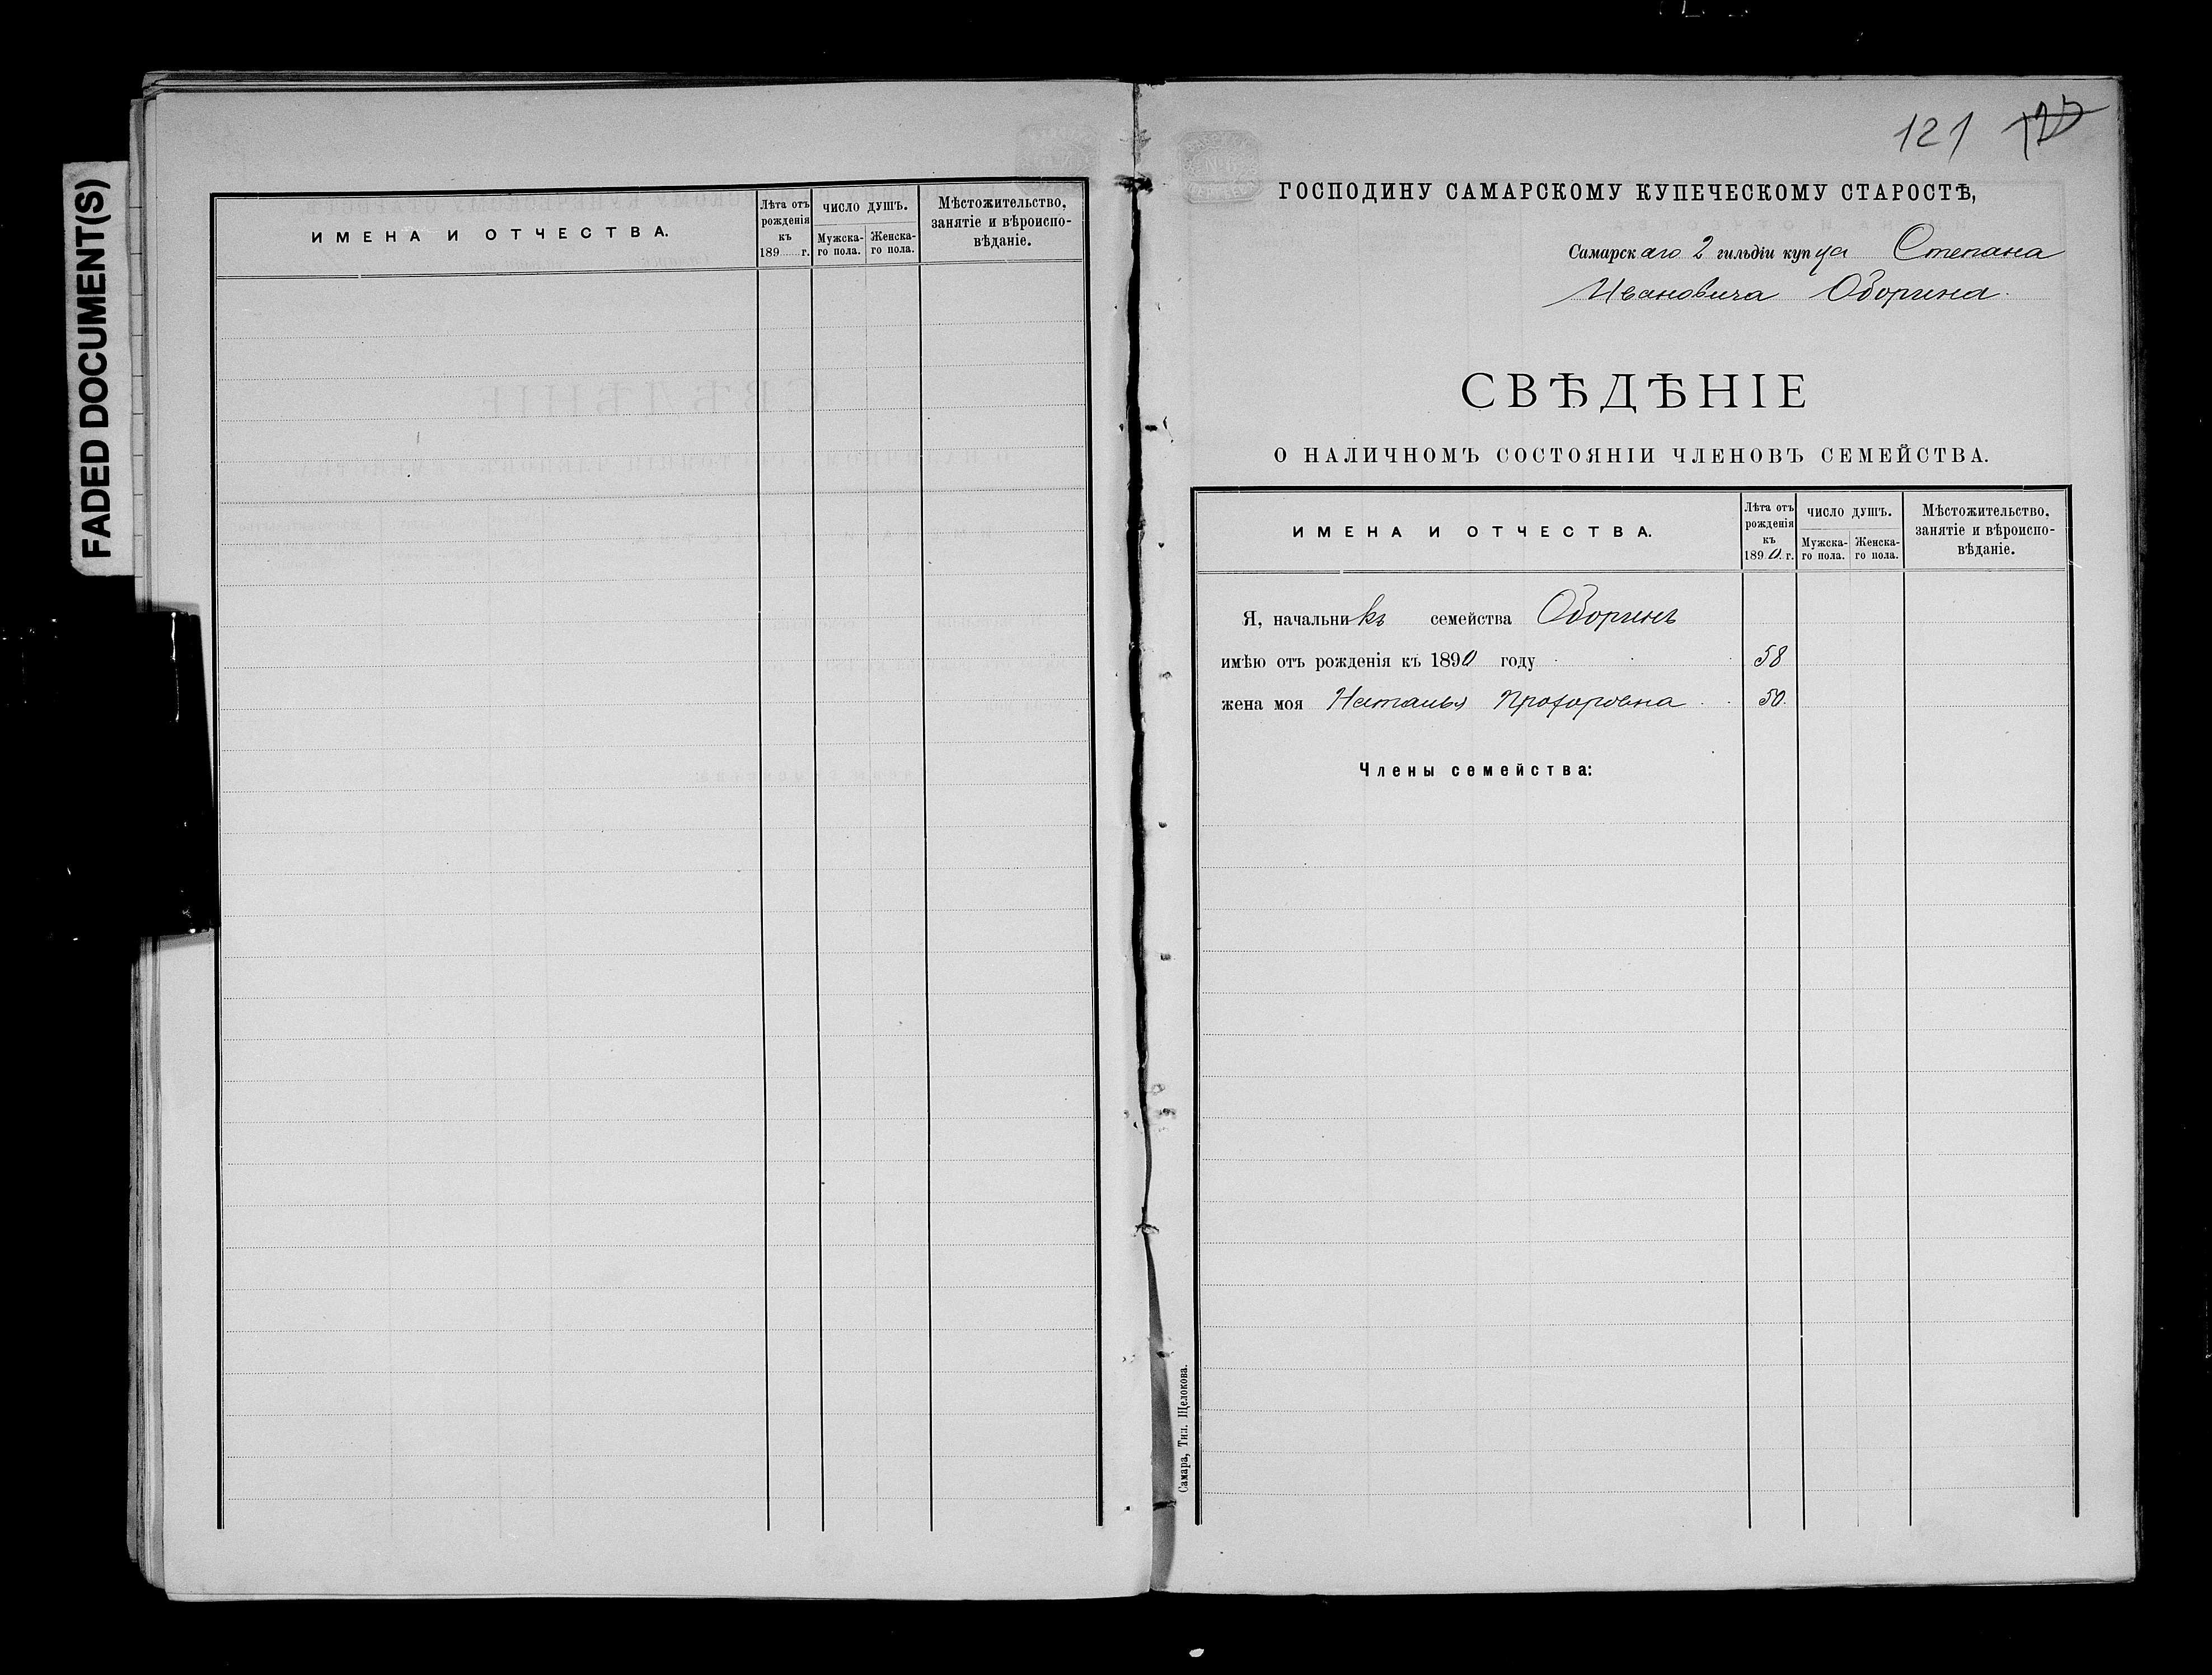 FADED DOCUMENT(S)
ИМЕНА И ОТЧЕСТВА.
Лѣта отъ рожденія къ 189 г.
ЧИСЛО ДУШЪ.
Мужска-го пола.
Женска-го пола.
Мѣстожительство, занятіе и вѣроиспо-вѣданіе.
121
ГОСПОДИНУ САМАРСКОМУ КУПЕЧЕСКОМУ СТАРОСТѢ,
Самарскаго 2 гильдіи купца Степана
Ивановича Оборина.
СВѢДѢНІЕ
О НАЛИЧНОМЪ СОСТОЯНІИ ЧЛЕНОВЪ СЕМЕЙСТВА.
ИМЕНА И ОТЧЕСТВА.
Лѣта отъ рожденія къ 1890 г.
ЧИСЛО ДУШЪ.
Мужска-го пола.
Женска-го пола.
Мѣстожительство, занятіе и вѣроиспо-вѣданіе.
Я, начальникъ семейства Оборинъ
имѣю отъ рожденія къ 1890 году 58
жена моя Наталья Прохоровна 50.
Члены семейства:
Самара, Тип. Щелокова.